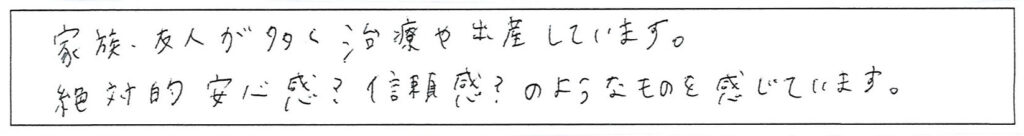 家族、友人が多く治療や出産しています。
絶対的安心感?信頼感?のようなものを感じています。